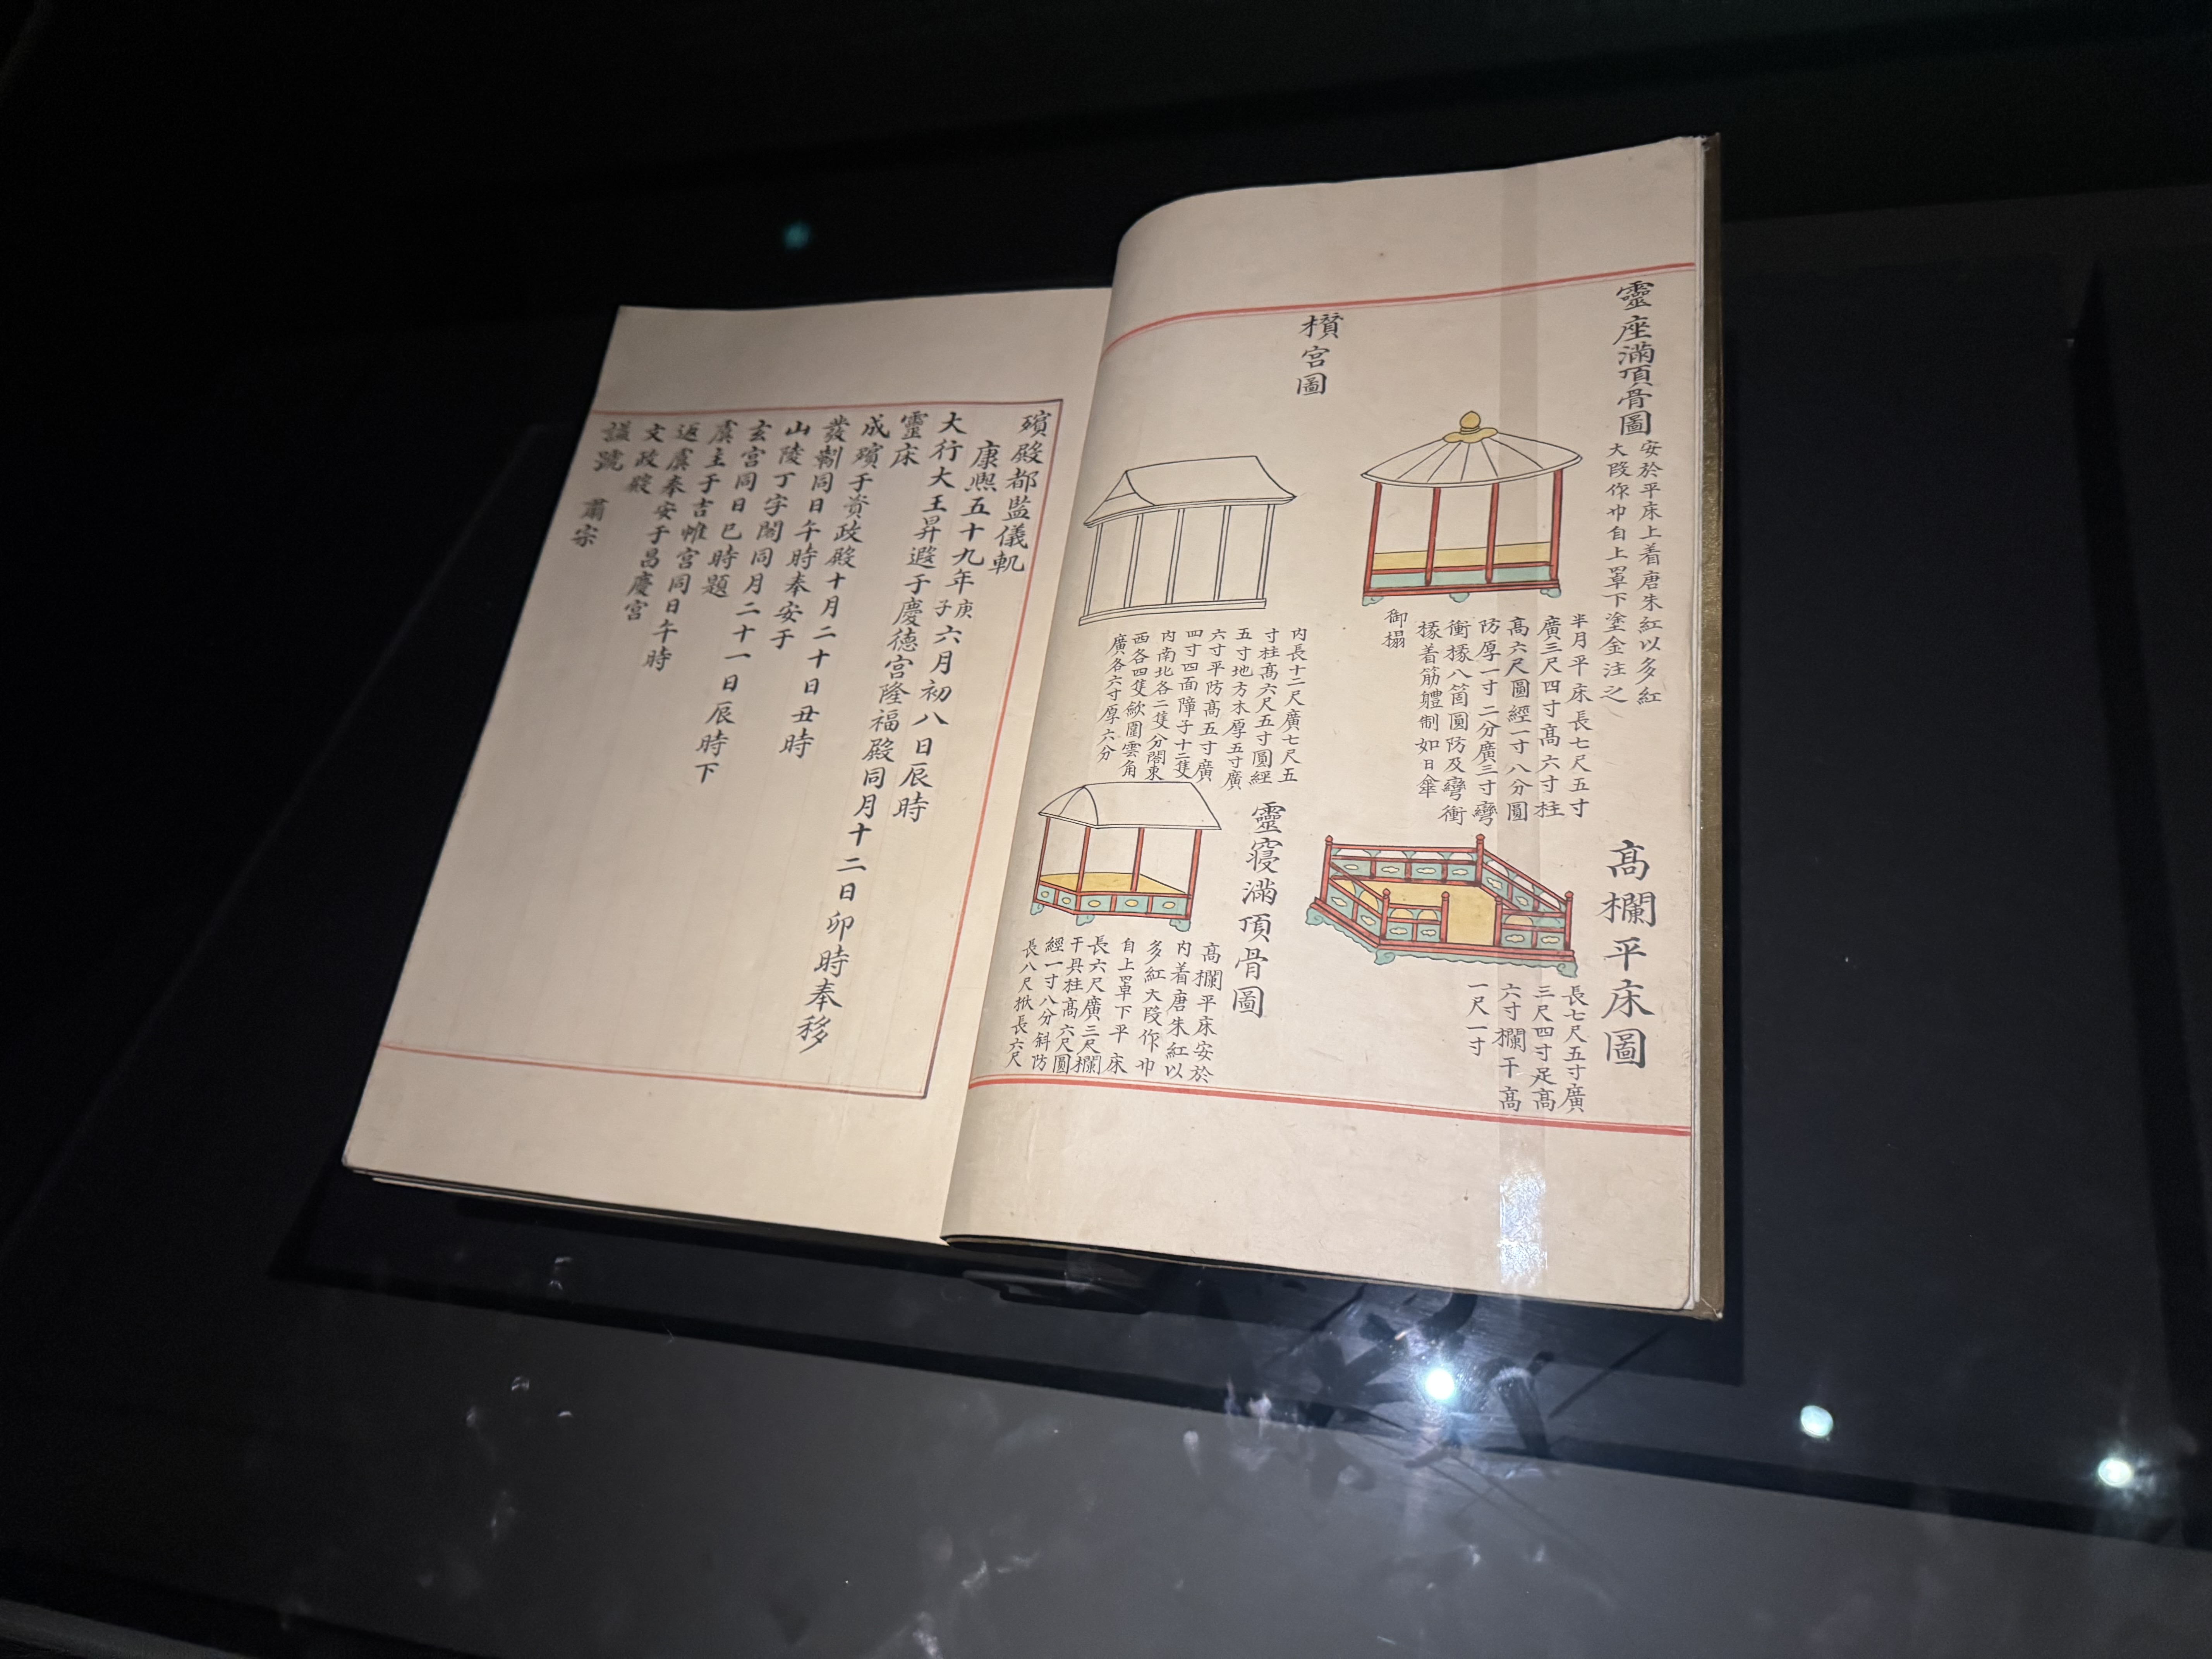 靈座滿頂骨圖
安於平床上着唐朱紅以多紅
大段作巾自上罩下塗金注之
半月平床長七尺五寸
廣三尺四寸高六寸柱
高六尺圓經一寸八分圓
防厚一寸二分廣三寸彎
衝椽八箇圓防及彎衝
椽着筋軆制如日傘
御榻
高欄平床圖
長七尺五寸廣
三尺四寸足高
六寸欄干高
一尺一寸
欑宮圖
內長十二尺廣七尺五
寸柱高六尺五寸圓經
五寸地方木厚五寸廣
六寸平防高五寸廣
四寸四面障子十二隻
內南北各二隻分閤東
西各四隻歛圍雲角
廣各六寸厚六分
靈寢滿頂骨圖
高欄平床安於
內着唐朱紅以
多紅大段作巾
自上罩下平床
長六尺廣三尺欄
干具柱高六尺圓
經一寸八分斜防
長八尺長六尺
殯殿都監儀軌
康熙五十九年庚子六月初八日辰時
大行大王昇遐于慶德宮隆福殿同月十二日卯時奉移
靈床
成殯于資政殿十月二十日丑時
發靷同日午時奉安于
山陵丁字閣同月二十一日辰時下
玄宮同日巳時題
虞主于吉帷宮同日午時
返虞奉安于昌慶宮
文政殿
謚號 肅宗